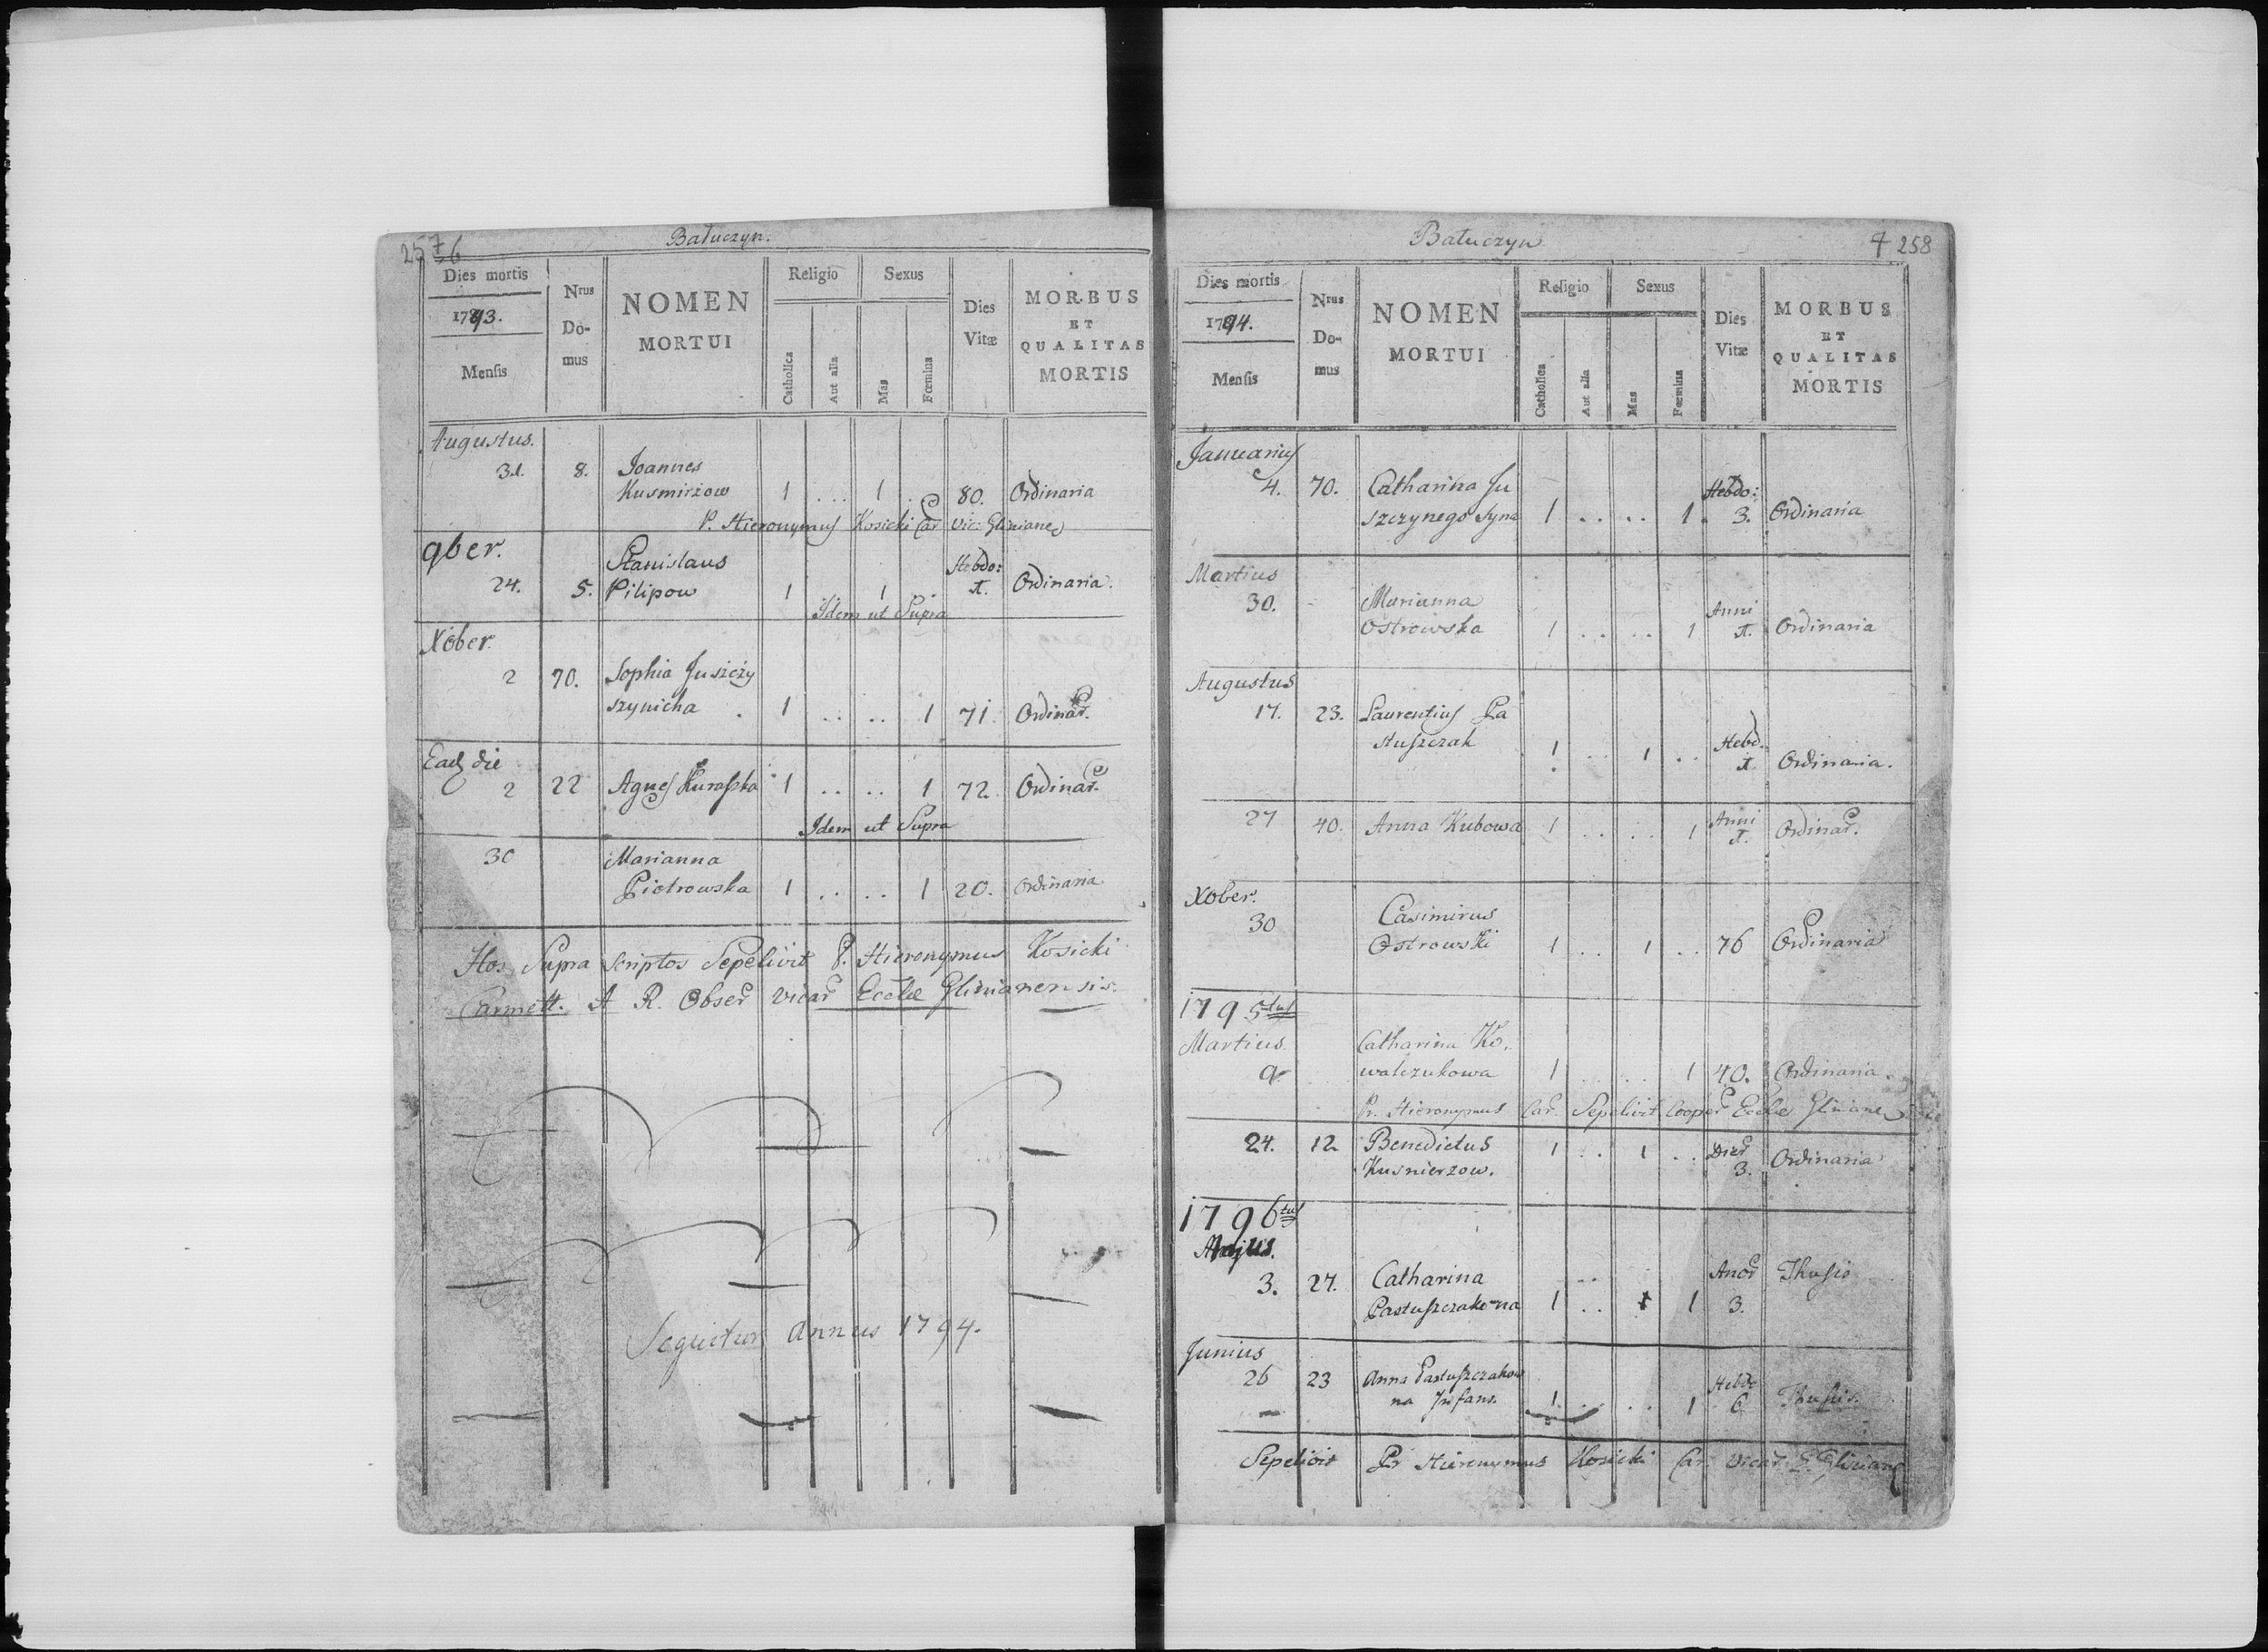 257 6
Batuczyn.
Dies mortis
1793.
Mensis
Nrus
Do-
mus
NOMEN
MORTUI
Religio
Catholica
Aut alia
Sexus
Mas
Fœmina
Dies
Vitæ
MORBUS
ET
QUALITAS
MORTIS
Augustus.
31. 8. Joannes
Kusmirzow 1 . . . 1 . 80. Ordinaria
P. Hieronymus Kosicki Car Vic: Gliniane
9ber.
Stanislaus Hebdo:
24. 5. Pilipow 1 1 1. Ordinaria.
Idem ut Supra
Xober.
2 70. Sophia Juszczy
szynicha . 1 .. .. 1 71. Ordinar.
Ead die
2 22 Agnes Kuraszka 1 .. .. 1 72. Ordinar.
Idem ut Supra
30 Marianna
Piotrowska 1 .. .. 1 20. Ordinaria
Hos Supra Scriptos Sepelivit P. Hieronymus Kosicki
Carmelt. A R. Obser Vicar Eccle Glinianensis.
Sequitur Annus 1794.
Batuczyn
7 258
Dies mortis
1794.
Mensis
Nrus
Do-
mus
NOMEN
MORTUI
Religio
Catholica
Aut alia
Sexus
Mas
Fœmina
Dies
Vitæ
MORBUS
ET
QUALITAS
MORTIS
Januarius
4. 70. Catharina Ju Hebdo:
szczynego Syna 1 .. .. 1. 3. Ordinaria
Martius
30. - Marianna Anni
Ostrowska 1 .. .. 1 1. Ordinaria
Augustus
17. 23. Laurentius Pa
stuszczak 1 .. 1 .. Hebd. 1. Ordinaria.
27 40. Anna Kubowa 1 .. .. 1 Anni 1. Ordinar.
Xober.
30 Casimirus
Ostrowski 1 .. 1 .. 76 Ordinaria
1795tus
Martius Catharina Ko,
9 walczukowa 1 .. .. 1 40. Ordinaria.
Pr. Hieronymus Car. Sepelivit Cooper Eccle Gliniane
24. 12 Benedictus 1 .. 1 .. Dier Ordinaria
Kusnierzow. 3.
1796tus
Majus.
3. 27. Catharina .. Anor Thusis
Pastuszczakowna 1 .. 1 3.
Junius
26 23 Anna Pastuszczakow Hebdo
na Infans. 1 .. .. 1 6 Thussis.
Sepelivit Pr Hieronymus Kosicki Car. Vicar E. Gliniane